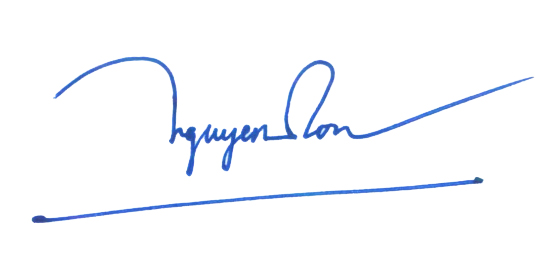 nguyen Son